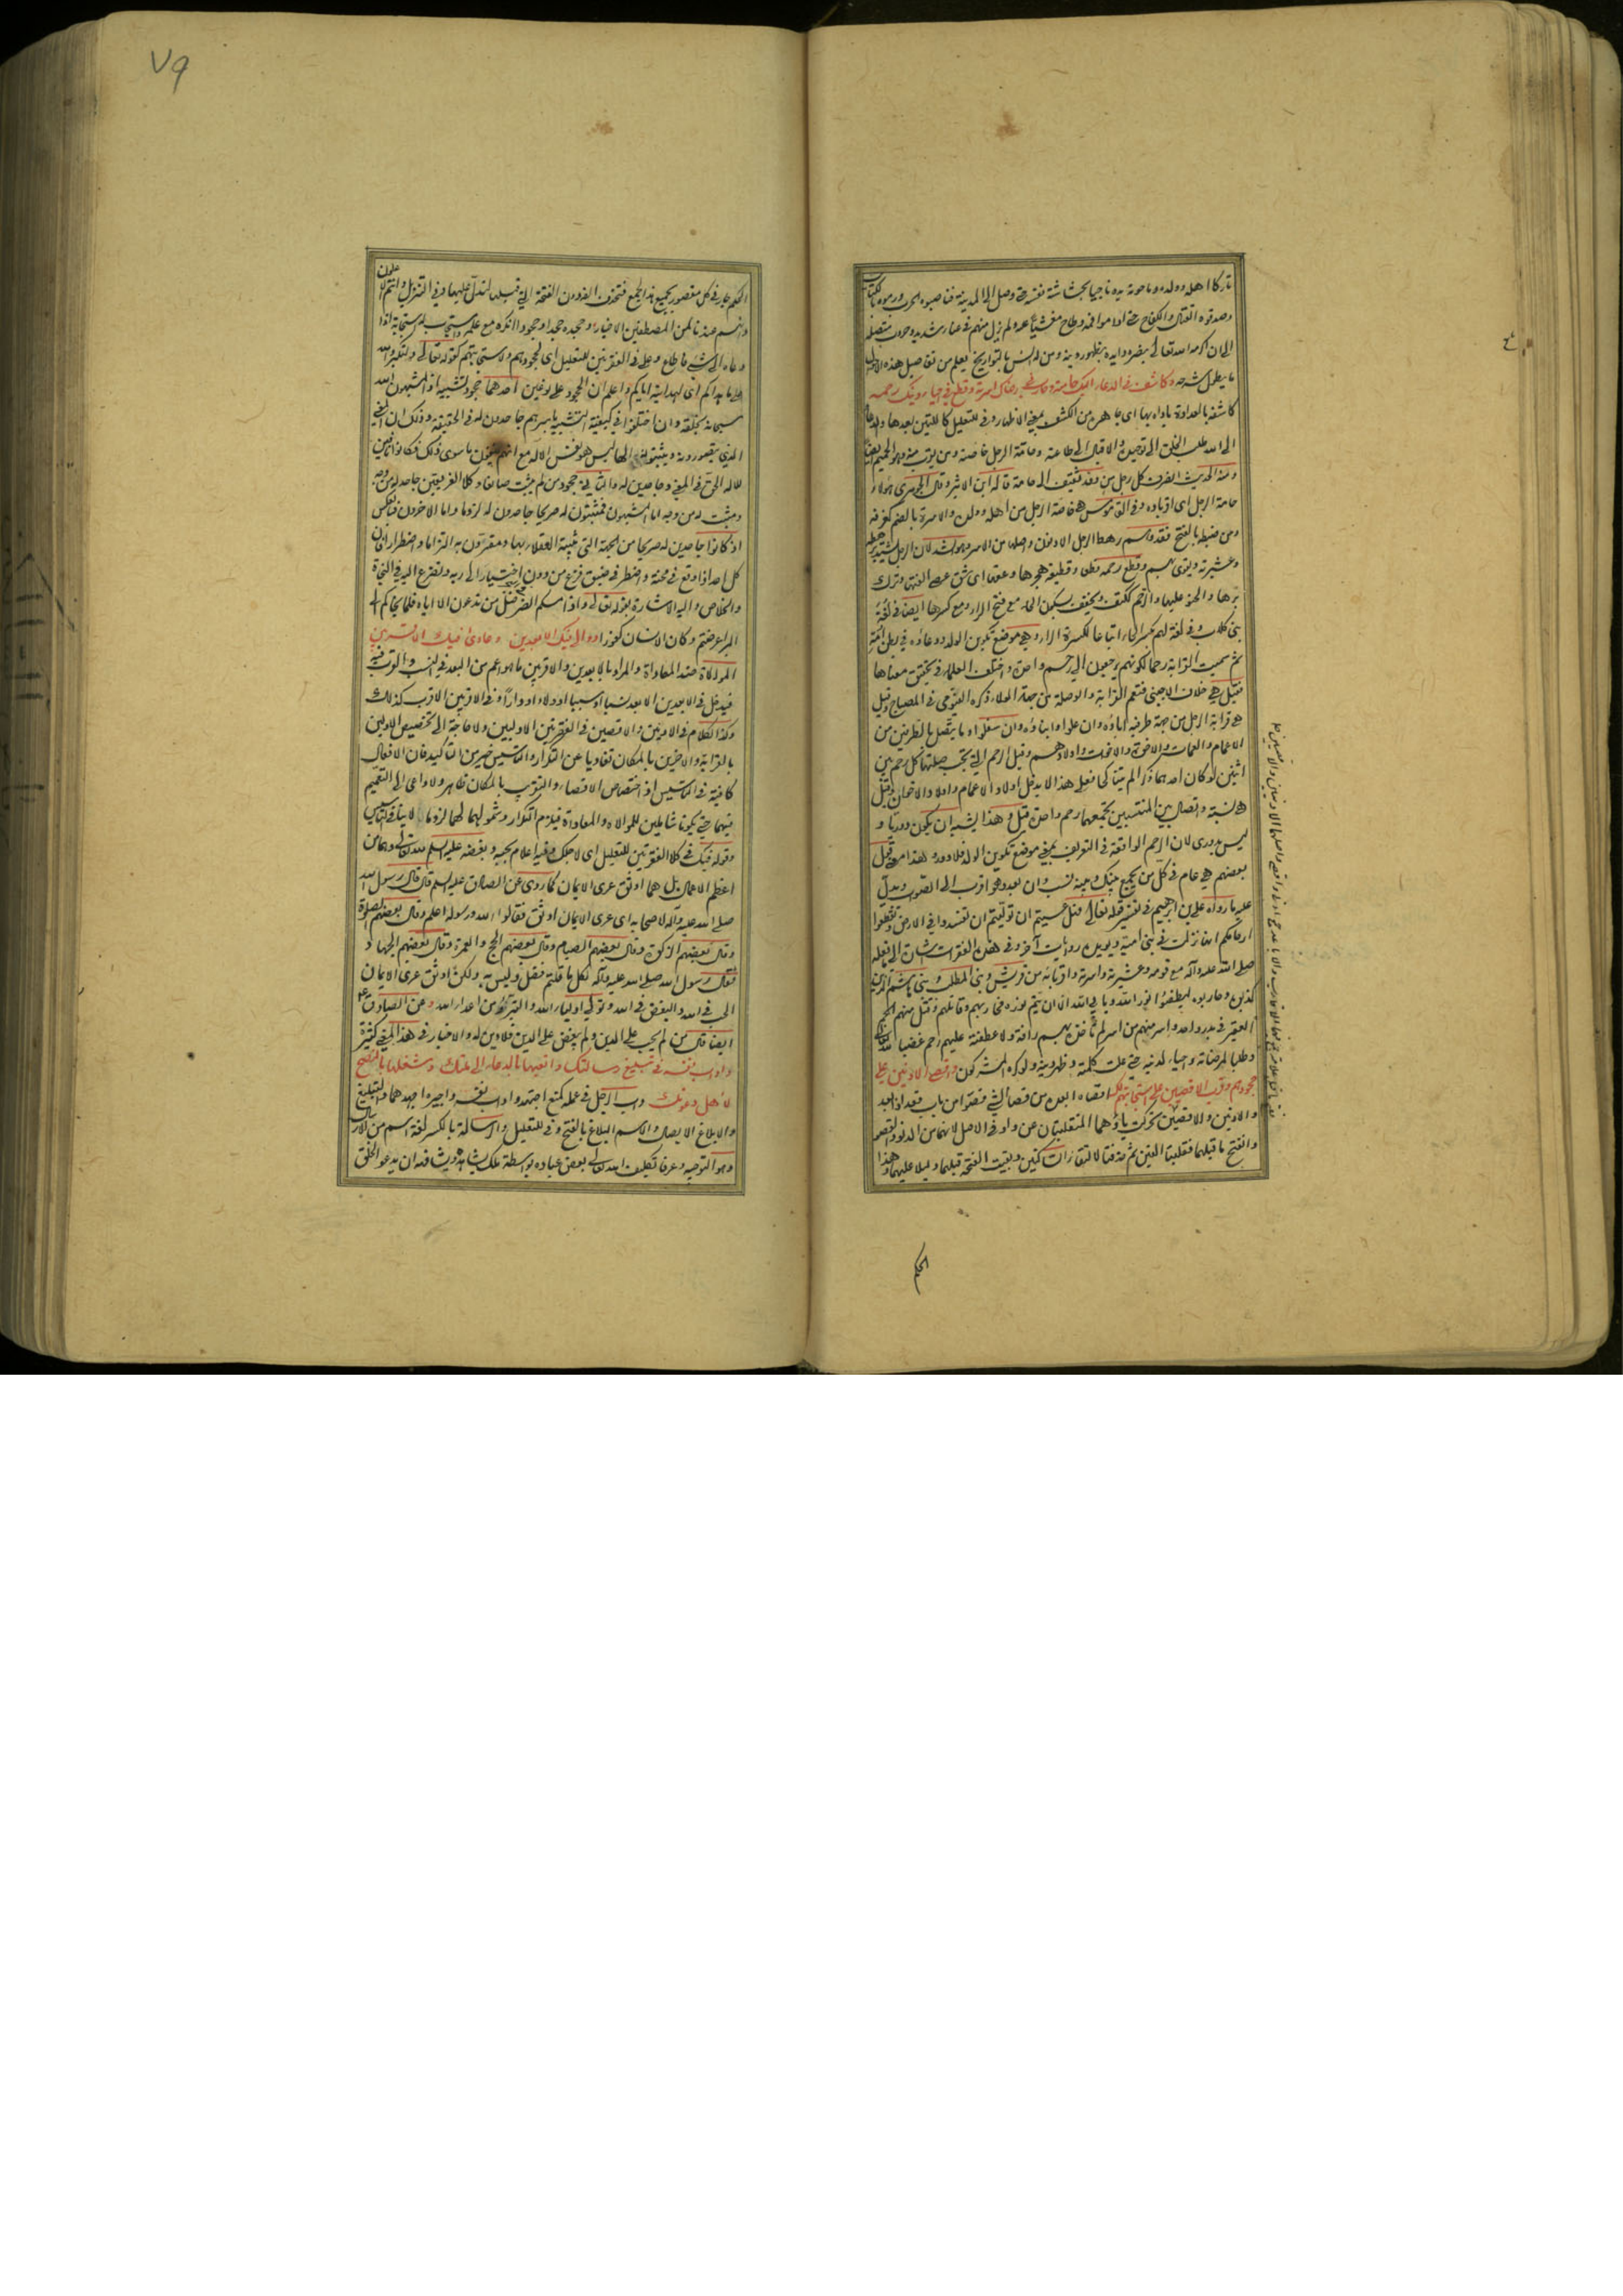 تاركا اهله وولده وما حوته يده ناجيا بحشاشة نفسه حتى وصل الى المدينة فناصبوه الحرب ورموه بالكتائب
وصدقوه القتال والكفاح حتى اذا
الى ان اكرمه الله تعالى بنصره وايده بظهور دينه ومن له انس بالتواريخ يعلم من تفاصيل هذه الاحوال
ما يطول شرحه وكاشف في الدعاء اليك حامته وحارب في رضاك اسرته وقطع في احياء دينك رحمه
كاشفه بالعداوة باداه بها اى جاهره من الكشف بمعنى الاظهار وفي للتعليل كاللتين بعدها والدعاء
الى الله طلب الخلق الى توحيده والاقبال الى طاعته وحامة الرجل خاصته ومن يقرب منه وهو الحميم ايضا
ومنه الحديث انصرف كل رجل من وفد ثقيف الى حامته قاله ابن الاثير وقال الجوهري هؤلاء
حامة الرجل اى اقرباؤه وفي القاموس هي خاصة الرجل من اهله وولده والاسرة بالضم كغرفة
ومن ضبطه بالفتح فقد وهم رهط الرجل الادنون واصلها من الاسر وهو الشد لان الرجل يشتد برهطه
وعشيرته ويقوى بهم وقطع رحمه قطعا وقطيعة هجرها وعقها اى شق عصا الفتها وترك
برها والحنو عليها والرحم ككتف ويخفف بسكون الحاء مع فتح الراء ومع كسرها ايضا في لغة
بنى كلاب وفي لغة لهم بكسر الحاء اتباعا لكسرة الراء وهي موضع تكوين الولد ووعاؤه في بطن امه
ثم سميت القرابة رحما لكونهم يرجعون الى رحم واحدة واختلف العلماء في تحقيق معناها
فقيل هي خلاف الاجنبى فتعم القرابة والوصلة من جهة الولاء ذكره الفيومى في المصباح وقيل
هي قرابة الرجل من جهة طرفيه اباؤه وان علوا وابناؤه وان سفلوا وما يتصل بالطرفين من
الاعمام والعمات والاخوة والاخوات واولادهم وقيل الرحم التى تجب صلتها كل رحم بين
اثنين لو كان احدهما ذكرا لم يتناكحا فعلى هذا لا يدخل اولاد الاعمام واولاد الاخوال وقيل
هي نسبة واتصال بين المنتسبين تجمعهما رحم واحدة قيل وهذا يشبه ان يكون دوريا و
ليس بدورى لان الرحم الواقعة في التعريف بمعنى موضع تكوين الولد فلا دور وقيل
بعضهم هي عام في كل من يجمع بينك وبينه نسب وان بعد وهو اقرب الى الصواب ويدل
عليه ما رواه على بن ابراهيم في تفسير قوله تعالى فهل عسيتم ان توليتم ان تفسدوا في الارض وتقطعوا
ارحامكم انها نزلت في بنى امية ويؤيده روايات آخر وفي هذه الفقرات اشارة الى ما فعله
صلى الله عليه وآله مع قومه وعشيرته واسرته واقربائه من قريش وبنى المطلب وبنى هاشم الذين
كذبوه وحاربوه ليطفئوا نور الله ويابى الله الا ان يتم نوره فحاربهم وقاتلهم وقتل منهم الجم
الغفير في بدر واحد واسر منهم من اسر لم تاخذه بهم رافة ولا عطفته عليهم رحم غضبا لله
وطلبا لمرضاته واحياء لدينه حتى علت كلمته وظهر دينه ولو كره المشركون واقصى الادنين على
جحودهم وقرب الاقصين على استجابتهم لك اقصاه ابعده من قصا الشئ قصوا من باب قعد اذا بعد
والادنين والاقصين تحركت ياؤهما المنقلبتان عن واو في الاصل لانهما من الدنو والقصو
وانفتح ما قبلهما فقلبتا الفين ثم حذفتا لالتقاء الساكنين وبقيت الفتحة قبلهما دليلا عليهما وهذا
الحكم
٧٩
الحكم جار في كل مقصور يجمع هذا الجمع فتحذف الفه دون الفتحة التى قبلها لتدل عليها وفي التنزيل وانتم الاعلون
وانهم عندنا لمن المصطفين الاخيار وجحده جحدا وجحودا انكره مع علمه واستجاب له استجابة اذا
دعاه الى شئ فاطاع وعلى في الفقرتين للتعليل اى لجحودهم ولاستجابتهم كقوله تعالى ولتكبروا الله
على ما هداكم اى لهدايته اياكم واعلم ان الجحود على نوعين احدهما جحود تشبيه اذ المشبهون الله
سبحانه بخلقه وان اختلفوا في كيفية التشبيه باسرهم جاحدون له في الحقيقة وذلك ان المعنى
الذى يتصورونه ويثبتونه الها ليس هو نفس الاله مع انهم ينفون ما سوى ذلك فكانوا نافين
للاله الحق في المعنى وجاحدين له والثانى جحود من لم يثبت صانعا وكلا الفريقين جاحد له من وجه
ومثبت له من وجه اما المشبهون فمثبتون له صريحا جاحدون له لزوما واما الاخرون فبالعكس
اذ كانوا جاحدين له صريحا من الجهة التى يثبته العقلاء بها ومقرون به التزاما واضطرارا فان
كل احد اذا وقع في محنة واضطر في ضيق فزع من دون اختيار الى ربه وتضرع اليه في النجاة
والخلاص واليه الاشارة بقوله تعالى واذا مسكم الضر في البحر ضل من تدعون الا اياه فلما نجاكم الى
البر اعرضتم وكان الانسان كفورا ووالى فيك الابعدين وعادى فيك الاقربين
الموالاة ضد المعاداة والمراد بالابعدين والاقربين ما هو اعم من البعد في النسب والقرب فيه
فيدخل في الابعدين الابعد نسبا او سببا او ولاء او دارا وفي الاقربين الاقرب كذلك
وكذا الكلام في الادنين والاقصين في الفقرتين الاوليين ولا حاجة الى تخصيص الاولين
بالقرابة والاخرين بالمكان تفاديا عن التكرار والتاسيس خير من التاكيد فان الافعال
كافية في التاسيس اذ اختصاص الاقصاء والتقريب بالمكان ظاهر ولا داعى الى التعميم
فيهما حتى يكونا شاملين للموالاة والمعاداة فيلزم التكرار وشمولهما لهما لزوما لا ينافى التاسيس
وقوله فيك في كلا الفقرتين للتعليل اى لاجلك وفيه اعلام بحبه وبغضه عليه السلم لله تعالى وهما من
اعظم الاعمال بل هما اوثق عرى الايمان كما روى عن الصادق عليه السلم قال قال رسول الله
صلى الله عليه وآله لاصحابه اى عرى الايمان اوثق فقالوا الله ورسوله اعلم وقال بعضهم الصلوة
وقال بعضهم الزكوة وقال بعضهم الصيام وقال بعضهم الحج والعمرة وقال بعضهم الجهاد
فقال رسول الله صلى الله عليه وآله لكل ما قلتم فضل وليس به ولكن اوثق عرى الايمان
الحب في الله والبغض في الله وتولى اولياء الله والتبرى من اعداء الله وعن الصادق
ايضا قال من لم يحب على الدين ولم يبغض على الدين فلا دين له والاخبار في هذا المعنى كثيرة
واداب نفسه في تبليغ رسالتك واتعبها بالدعاء الى ملتك وشغلها بالنصح
لاهل دعوتك داب الرجل في عمله كمنع اجتهد واداب نفسه واجيره اجهدهما والتبليغ
والابلاغ الايصال والاسم البلاغ بالفتح وفي للتعليل والرسالة بالكسر لغة اسم من الارسال
وهو التوجيه وعرفا تكليف الله تعالى بعض عباده بواسطة ملك يشاهده ويشافهه ان يدعو الخلق